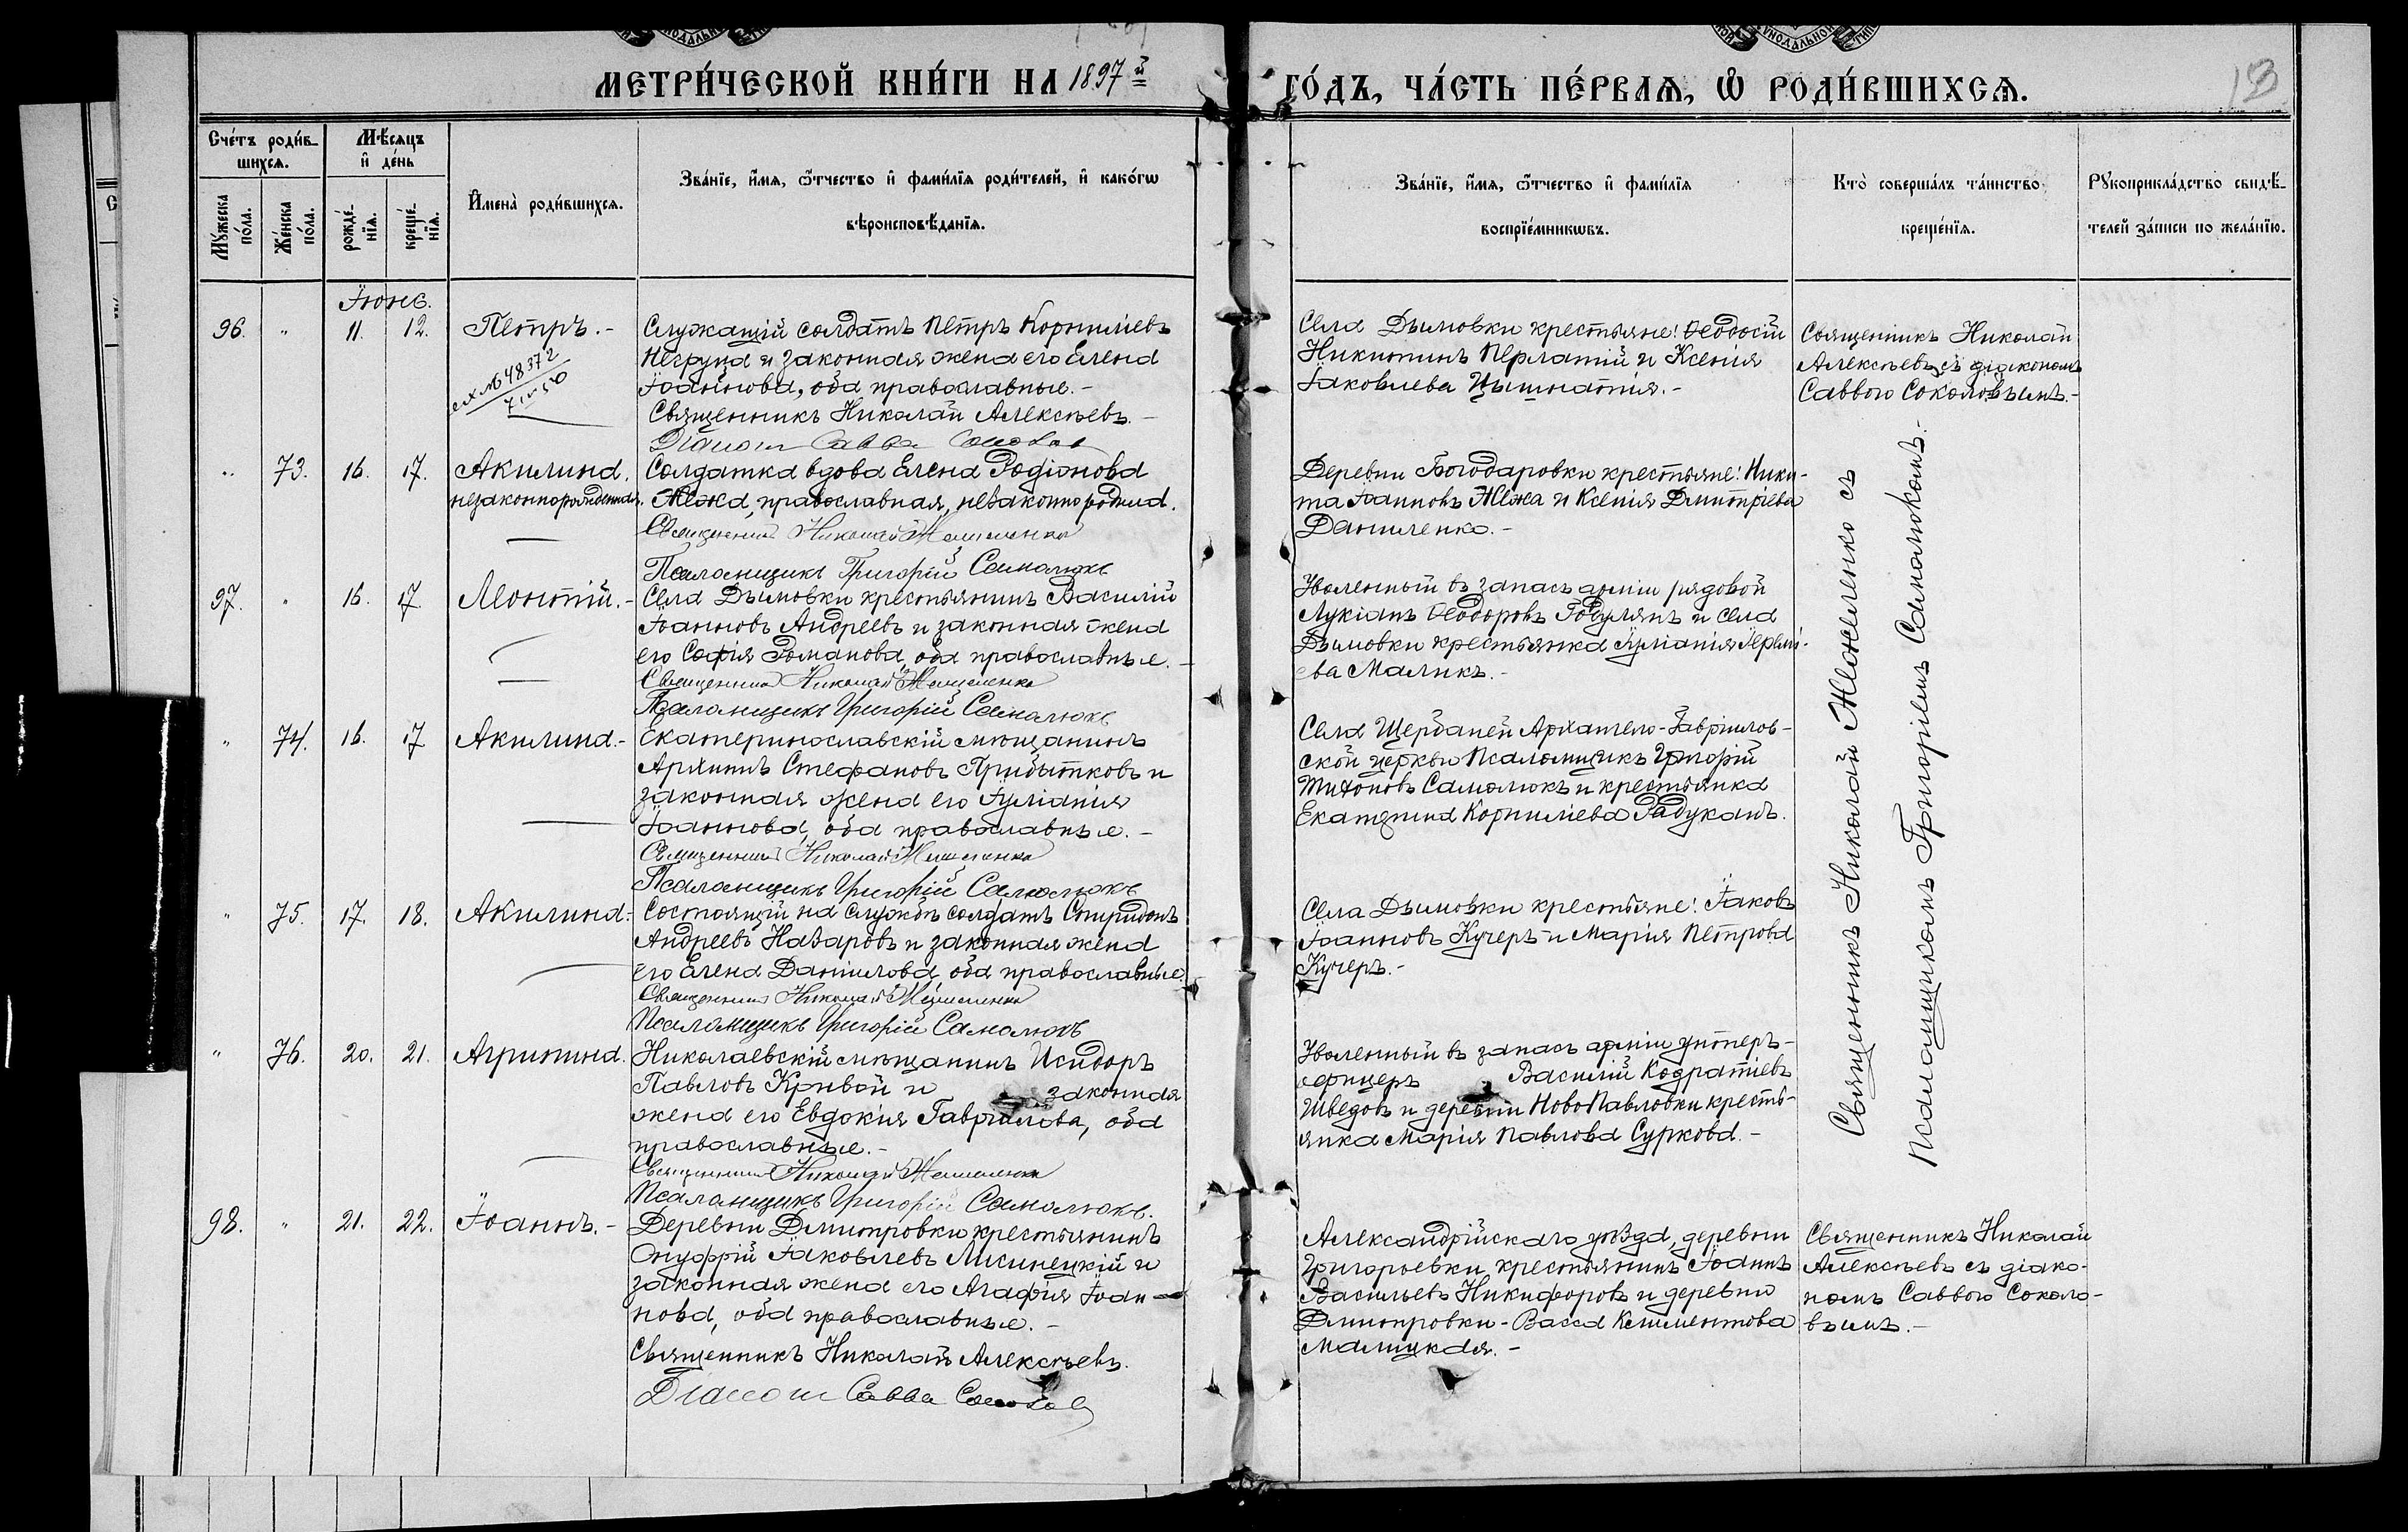 МЕТРИ́ЧЕСКОЙ КНИ́ГИ НА 1897й ГО́ДЪ, ЧА́СТЬ ПЕ́РВАѦ, Ѡ҆ РОДИ́ВШИХСѦ.
13
Сче́тъ роди́в-
шихсѧ.
Мꙋ́жеска по́ла.
Же́нска по́ла.
Мѣ́сѧцъ
и҆ де́нь
рожде́-
нїѧ.
креще́-
нїѧ.
И҆мена̀ роди́вшихсѧ.
Зва́нїе, и҆́мѧ, ѻ҆́тчество и҆ фами́лїѧ роди́телей, и҆ како́гѡ
вѣроисповѣ́данїѧ.
Зва́нїе, и҆́мѧ, ѻ҆́тчество и҆ фами́лїѧ
воспрїе́мникѡвъ.
Кто̀ соверша́лъ та́инство
креще́нїѧ.
Рꙋкоприкла́дство свидѣ́-
телей за́писи по жела́нїю.
Іюнь.
96. " 11. 12. Петръ.-
№ 48372
Служащій солдатъ Петръ Корниліевъ
Негруца и законная жена его Елена
Іоаннова, оба православные.-
Священникъ Николай Алексѣевъ.-
Діаконъ Савва Соколов
Села Дымовки крестьяне: Ѳеодосій
Никитинъ Перлатій и Ксенія
Іаковлева Цышнатія.-
Священникъ Николай
Алексѣевъ съ діакономъ
Саввою Соколовымъ.-
" 73. 16. 17. Акилина.
незаконнорожденная.
Солдатка вдова Елена Родіонова
Межа, православная, незаконно родила.
Священникъ Николай
Псаломщикъ Григорій Самолюкъ
Деревни Богодаровки крестьяне: Ники-
та Іоанновъ Межа и Ксенія Димитріева
Даниленко.-
97. " 16. 17. Леонтій.-
Села Дымовки крестьянинъ Василій
Іоанновъ Андреевъ и законная жена
его Софія Романова, оба православные.-
Священникъ Николай
Псаломщикъ Григорій Самолюкъ
Уволенный въ запасъ арміи рядовой
Лукіанъ Ѳеодоровъ Годулянъ и села
Дымовки крестьянка Іуліанія Іеремі-
ева Маликъ.-
" 74. 16. 17 Акилина.-
Екатеринославскій мѣщанинъ
Архипъ Стефановъ Прибытковъ и
законная жена его Іуліанія
Іоаннова, оба православные.-
Священникъ Николай
Псаломщикъ Григорій Самолюкъ
Села Щербаней Архангело-Гавріилов-
ской церкви Псаломщикъ Григорій
Тихоновъ Самолюкъ и крестьянка
Екатерина Корниліева Радуканъ.
" 75. 17. 18. Акилина.-
Состоящій на службѣ солдатъ Спиридонъ
Андреевъ Назаровъ и законная жена
его Елена Даніилова, оба православные.
Священникъ Николай
Псаломщикъ Григорій Самолюкъ
Села Дымовки крестьяне: Іаковъ
Іоанновъ Кучеръ и Марія Петрова
Кучеръ.-
" 76. 20. 21. Агрипина.
Николаевскій мѣщанинъ Исидоръ
Павловъ Кривой и законная
жена его Евдокія Гавріилова, оба
православные.-
Священникъ Николай
Псаломщикъ Григорій Самолюкъ.
Уволенный въ запасъ арміи унтеръ-
офицеръ Василій Кодратіевъ
Шведовъ и деревни НовоПавловки кресть-
янка Марія Павлова Суркова.-
Священникъ Николай съ
Псаломщикомъ Григоріемъ Самолюкомъ.-
98. " 21. 22. Іоаннъ.-
Деревни Дмитровки крестьянинъ
Онуфрій Іаковлевъ Лисинецкій и
законная жена его Агафія Іоан-
нова, оба православные.-
Священникъ Николай Алексѣевъ.
Діаконъ Савва Соколов
Александрійскаго уѣзда, деревни
Григорьевки, крестьянинъ Іоаннъ
Васильевъ Никифоровъ и деревни
Дмитровки - Васса Климентова
Малицкая.-
Священникъ Николай
Алексѣевъ съ діако-
номъ Саввою Соколо-
вымъ.-